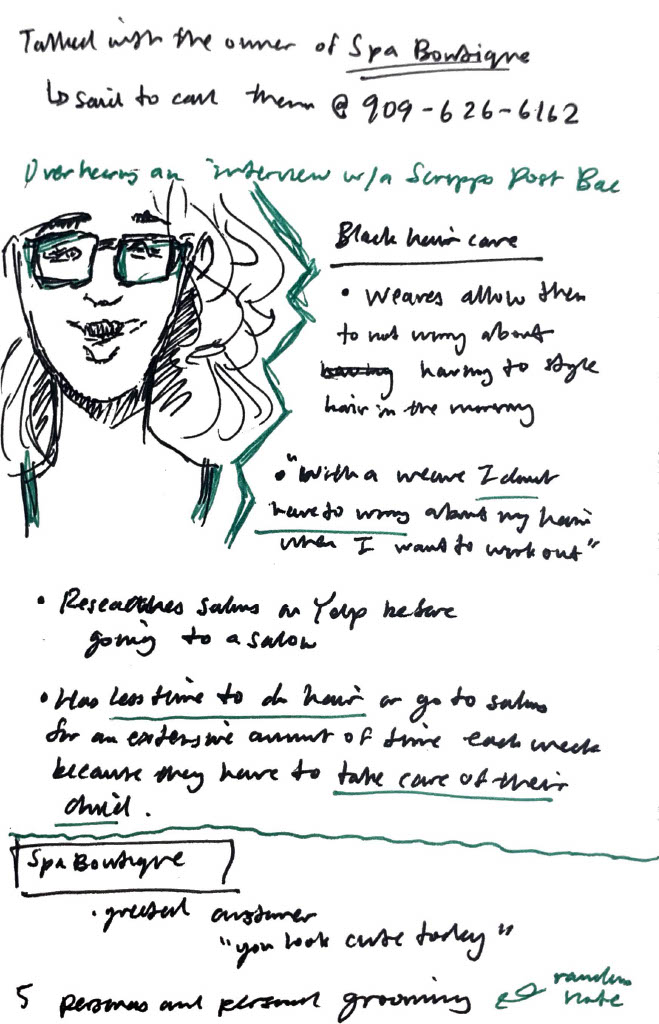 Talked with the owner of Spa Boutique
↳ said to call them @ 909-626-6162
Overhearing an interview w/a Scripps Post Bac
Black hair care
• Weaves allow them
to not worry about
having having to style
hair in the morning
• "With a weave I dont
have to worry about my hair
when I want to work out"
• Researches salons on Yelp before
going to a salon
• Has less time to do hair or go to salons
for an extensive amount of time each week
because they have to take care of their
child.
Spa Boutique
• greeted customer
"you look cute today"
5 personas and personal grooming
random
note